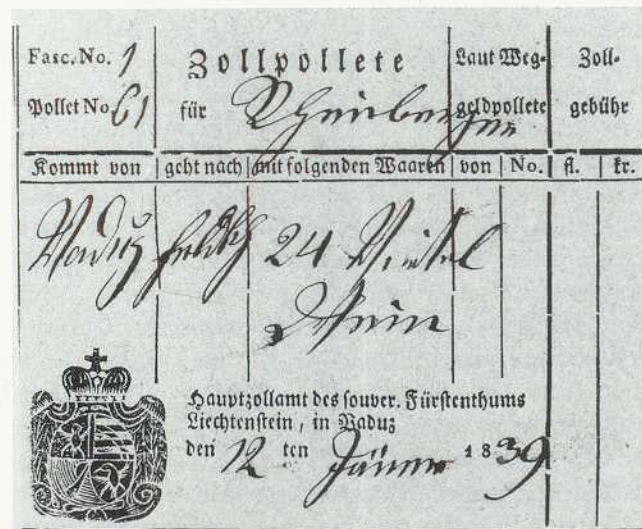 Fasc. No. 1
Pollet No. 61
Zollpollete
für Rheinberger
Laut Weg-
geldpollete
Zoll-
gebühr
Kommt von | geht nach | mit folgenden Waaren | von | No. | fl. | kr.
Vaduz Feldk 24 Viertel
Wein
Hauptzollamt des souver. Fürstenthums
Liechtenstein, in Vaduz
den 12 ten Jänner 1839